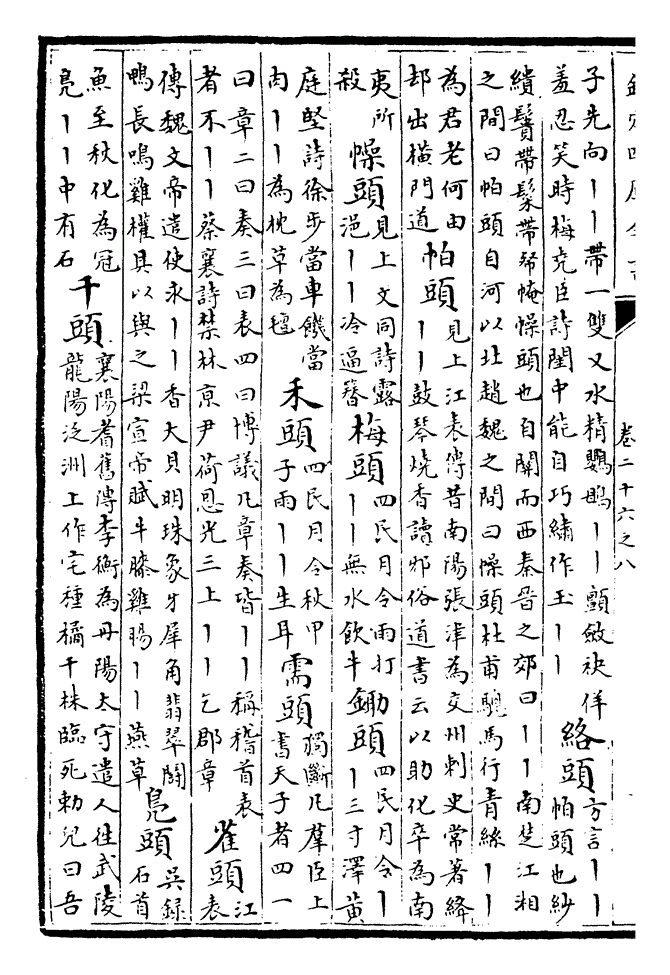 卷二十六之八
子先向丨丨帶一雙又水精鸚鵡丨丨顫斂袂佯
羞忍笑時梅堯臣詩閨中能自巧繡作玉丨丨
絡頭
方言丨丨
帕頭也紗
繢鬢帶髤帶帤㡋幧頭也自關而西秦晉之郊曰丨丨南楚江湘
之間曰帕頭自河以北趙魏之間曰幧頭杜甫驄馬行青絲丨丨
為君老何由
却出橫門道
帕頭
見上江表傳昔南陽張津為交州刺史常著絳
丨丨鼓琴燒香讀邪俗道書云以助化卒為南
夷所
殺
幧頭
見上文同詩露
浥丨丨冷逼簪
梅頭
四民月令雨打
丨丨無水飲牛
鋤頭
四民月令丨
丨三寸澤黃
庭堅詩徐步當車饑當
肉丨丨為枕草為氊
禾頭
四民月令秋甲
子雨丨丨生耳
需頭
獨斷凡羣臣上
書天子者四一
曰章二曰奏三曰表四曰博議凡章奏皆丨丨稱稽首表
者不丨丨蔡襄詩禁林京尹荷恩光三上丨丨乞郡章
雀頭
江
表
傳魏文帝遣使求丨丨香大貝明珠象牙犀角翡翠鬬
鴨長鳴雞權具以與之梁宣帝賦牛膝雞腸丨丨燕草
鳧頭
吳錄
石首
魚至秋化為冠
鳧丨丨中有石
千頭
襄陽耆舊傳李衡為丹陽太守遣人往武陵
龍陽泛洲上作宅種橘千株臨死勅兒曰吾